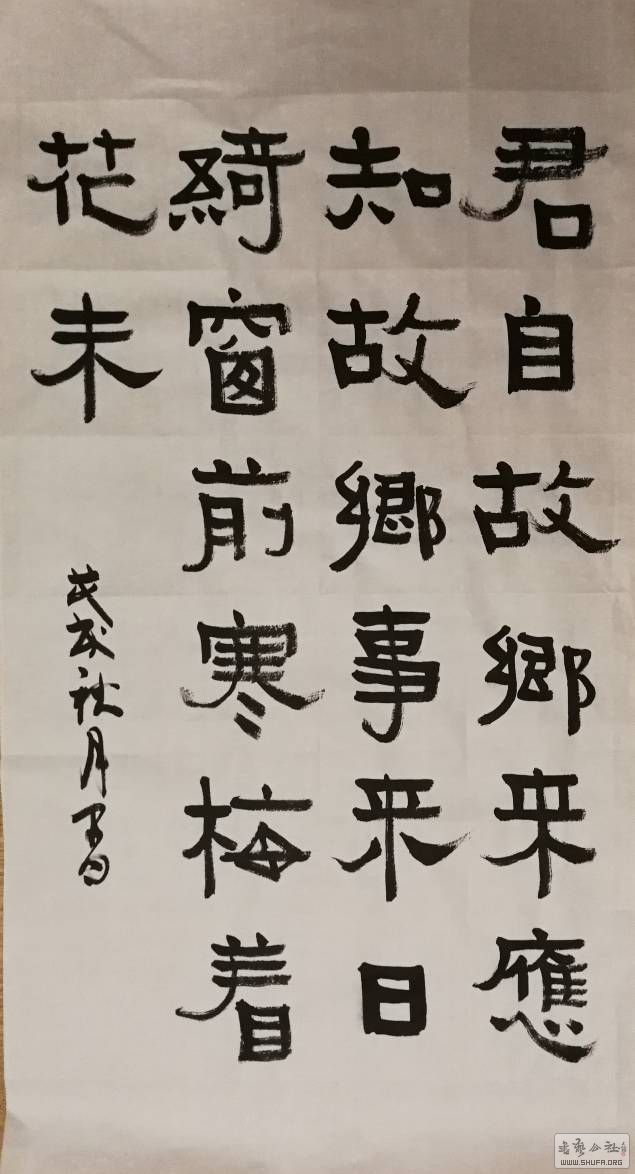 君自故鄉来應
知故鄉事来日
綺窗前寒梅着
花未
戊戌秋月
WWW.SHUFA.ORG